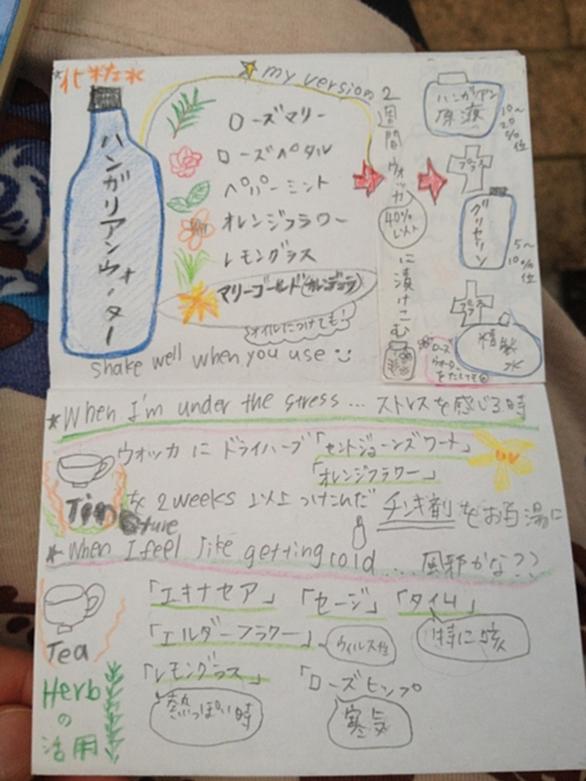 *化粧水
ハンガリアンウォーター
my version
ローズマリー
ローズペタル
ペパーミント
オレンジフラワー
レモングラス
マリーゴールド(カレンデュラ)
オイルにつけても!
2週間ウォッカ
40%以上
に漬けこむ
ハンガリアン
原液
10~
20
%位
プラス
グリセリン
5~
10%位
プラス
精製
水
ローズ
ウォーター
をたしても
shake well when you use
*When I'm under the stress... ストレスを感じる時
ウォッカに ドライハーブ「セントジョーンズワート」
「オレンジフラワー」
Tincture
を 2 weeks 以上つけこんだ チンキ剤をお白湯に
*When I feel like getting cold ... 風邪かな??
Tea
「エキナセア」 「セージ」 「タイム」
特に咳
「エルダーフラワー」
ウィルス性
「レモングラス」 「ローズヒップ
熱っぽい時
寒気
Herb
の
活用